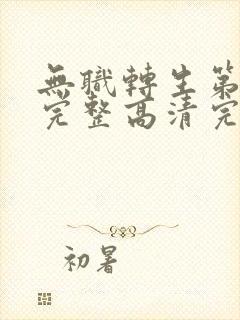 無職轉生第
完整高清完
初暑